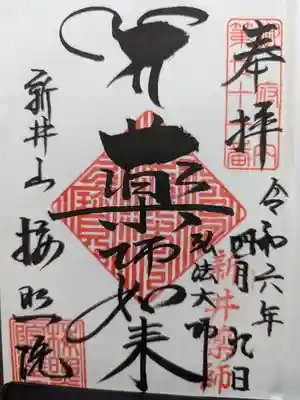 奉拝
令和六年
四月九日
新井薬師
弘法大師
薬師如来
新井山
梅照院